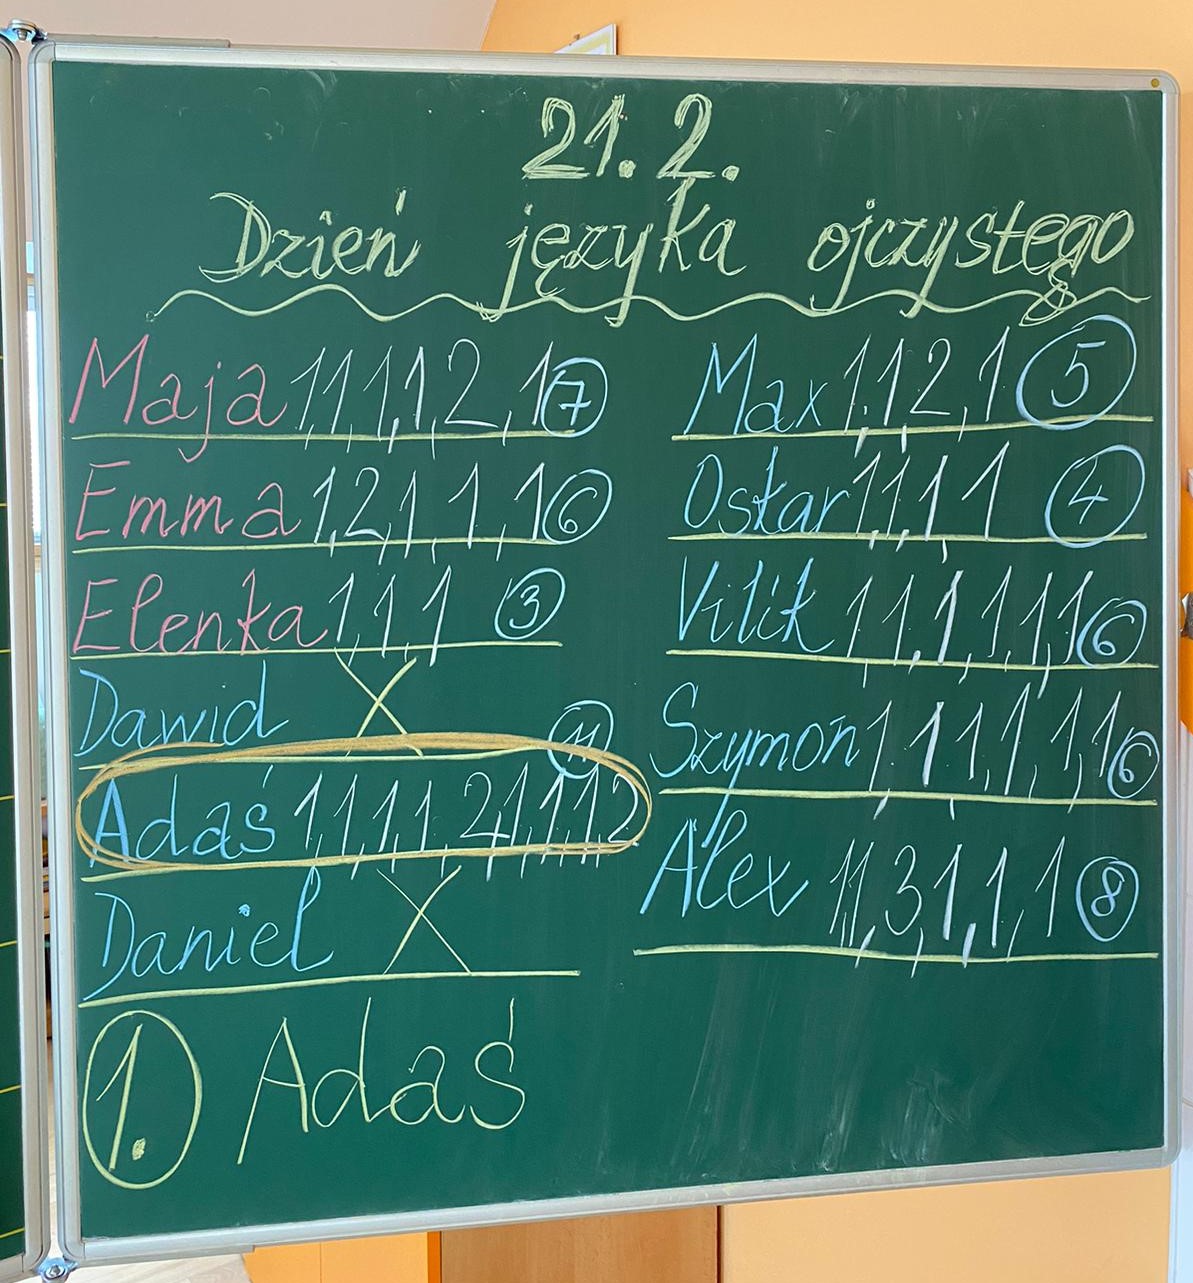 21. 2.
Dzień języka ojczystego
Maja 1,1,1,1,2,1 7
Emma 1,2,1,1,1 6
Elenka 1,1,1 3
Dawid X
Adaś 1,1,1,1,2,1,1,1,2 11
Daniel X
1. Adaś
Max 1,1,2,1 5
Oskar 1,1,1,1 4
Vilik 1,1,1,1,1,1 6
Szymon 1,1,1,1,1,1 6
Alex 1,1,3,1,1,1 8